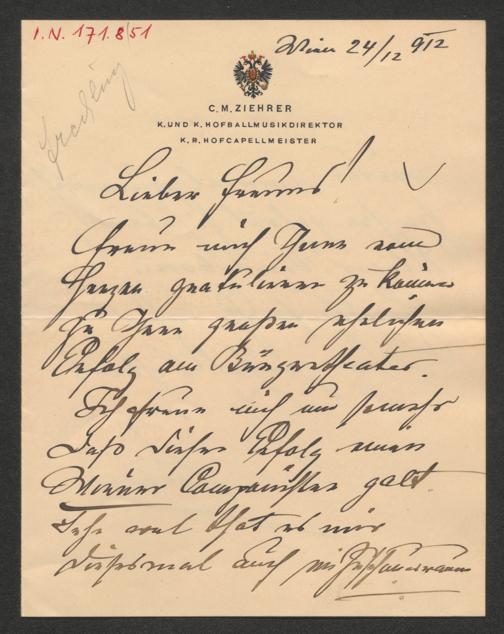 I.N. 171.851
Wien 24/12 912
C. M. ZIEHRER
K. UND K. HOFBALLMUSIKDIREKTOR
K. R. HOFCAPELLMEISTER
Lieber Freund!
Freue mich Ihnen vom
Herzen gratuliren zu können
zu Ihren großen ehrlichen
Erfolg am Bürgertheater.
Ich freue mich um somehr
daß dieser Erfolg einen
Wiener Componisten galt.
Sehr wol that es mir
diesesmal auch